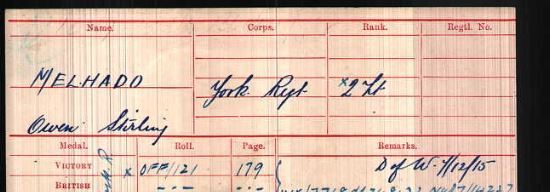 Name. Corps. Rank. Regtl. No.
MELHADO York Regt x2 Lt
Owen Stirling
Medal. Roll. Page. Remarks.
VICTORY x OFF/121 179 D of W. 7/12/15
BRITISH -"- -"-